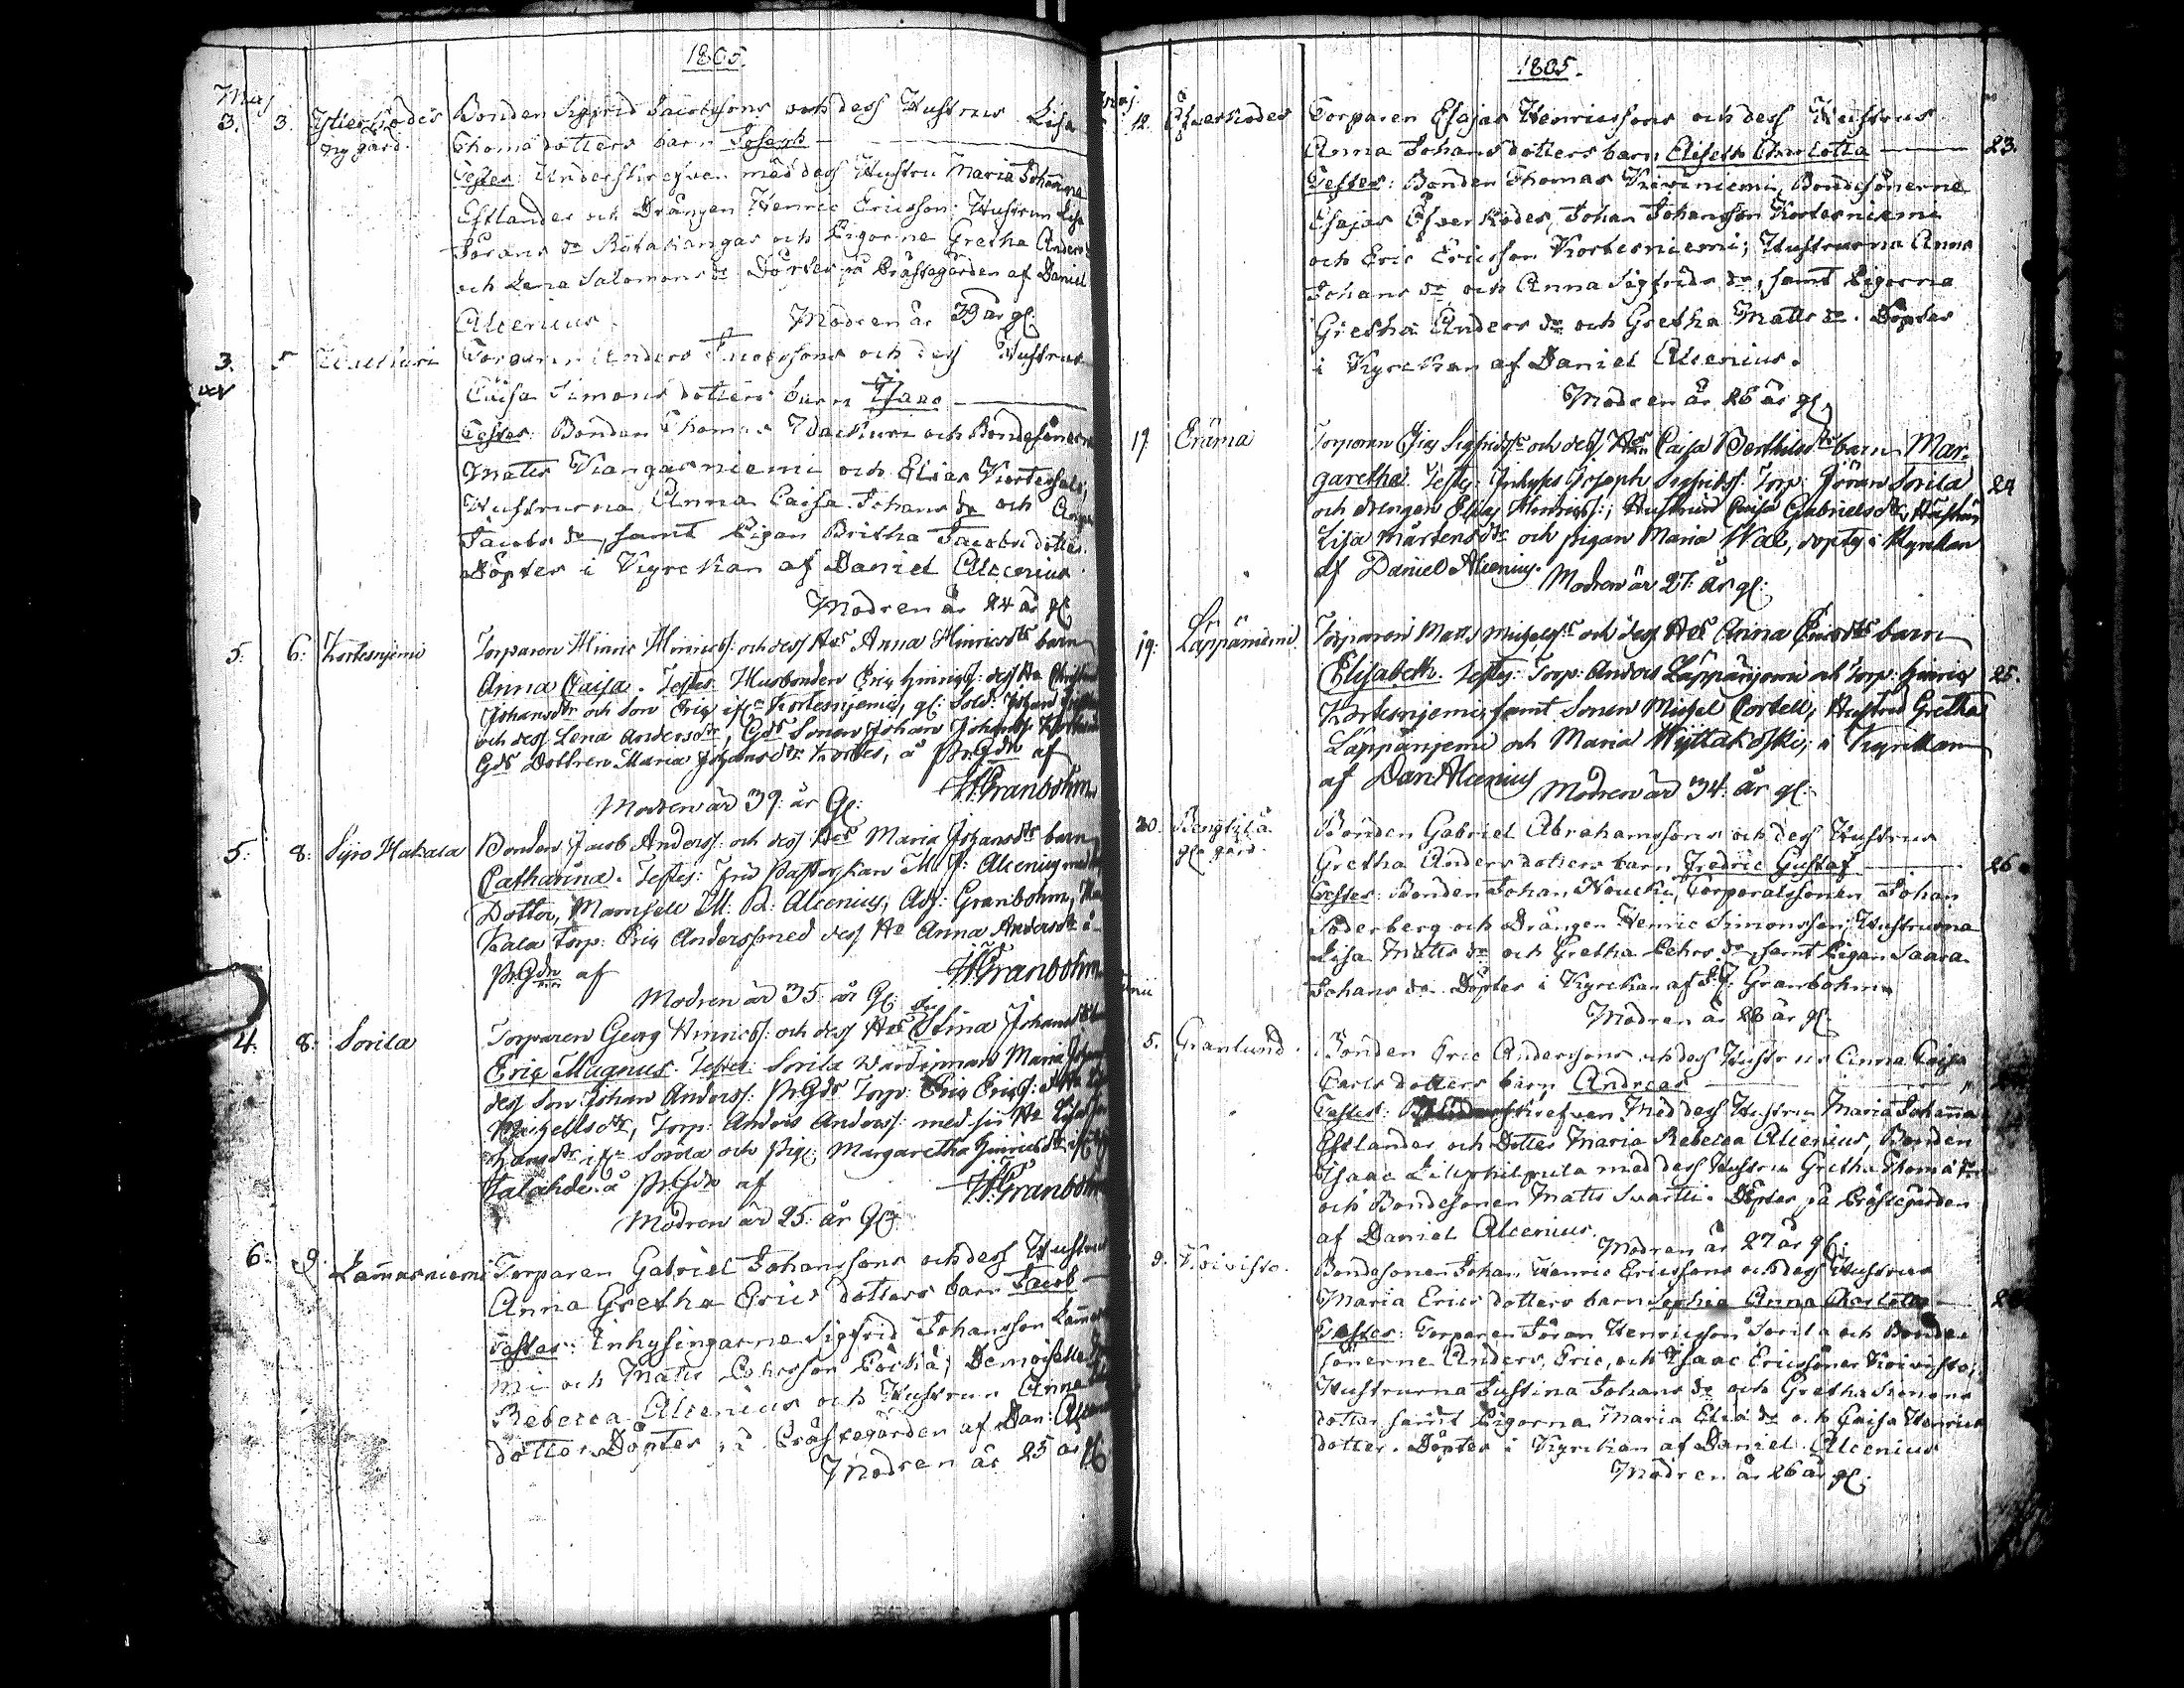 1805.
Maj
3. 3. Ytterkodes Bonden Sigfrid Jacobssons och dess Hustrus Lisa
nygård. Thomä dotters barn Joseph
Testes: Underskrefven med dess Hustru Maria Johanna
Estlander och Drängen Henric Ericsson: Hustrun Lisa
Jörans dr och Pigorne Gretha Anders
och Lena Salomons dr. Döptes på Prästegården af Daniel
Alcenius. Modren är 39 år gl.
3. 5 Torparen Anders Jacobssons och dess Hustrus
Caisa Simons dotters barn Isaac
Testes: Bonden Thomas och Bondesönerne
Matts Kangasniemi och Elias
Hustrurna Anna Caisa Johans dr och
Jacobs dr, samt Pigan Britha Jacobs dotter
Döptes i Kyrckan af Daniel Alcenius
Modren är 24 år gl.
5. 6: Kortesnjemi Torparen Hinric Hinricss: och dess Hus Anna Hinricsdrs barn
Anna Caisa. Testes: Husbonden Eric Hinricss: dess Ha
Johansdr och Son Eric ifrn Kortesnjemi, gl: Sold:
och dess Lena Andersdr, Gds Sonen Johan Johanss:
Gds Dottren Maria Johansdr Kortes, å Pr.Gdn af
Modren är 39: år Gl: H. Granbohm
5: 8: Syro Hakala Bonden Jacob Anderss: och dess Hus Maria Johansdrs barn
Catharina. Testes: Fru Pastorskan M: J: Alcenius med
Dotter, Mamsell M: R: Alcenius, Adj: Granbohm,
Torp: Eric Anderss med dess Ha Anna Andersdr å
Pr.Gdn af H. Granbohm
Modren är 35: år Gl:
4. 8: Sorila Torparen Georg Hinricss: och dess Hus Stina Johans
Eric Magnus. Testes: Sorila Maria
dess Son Johan Anderss: Pr.Gds Torp: Eric Ericss:
Michellsdr, Torp: Anders Anderss: med sin Ha
ifrn Sorila och Pig: Margaretha Hinricsdr
å Pr.Gdn af H. Granbohm
Modren är 25: år Gl:
6: 9. Lamasniemi Torparen Gabriel Johanssons och dess Hustrus
Anna Gretha Erics dotters barn Jacob
Testes: Inhysingarne Sigfrid Johansson
mi och Matts Demoiselle
Rebecca Alcenius och Hustrun Anna
dotter. Döptes på Prästegården af Dan: Alcenius
Modren är 25 år gl.
1805.
Maj
12. Öfverkodes Torparen Esajas Henricssons och dess Hustrus
Anna Johansdotters barn Eliseth Charlotta 23.
Testes: Bonden Thomas Kiviniemi, Bondesönerne
Esajas Öfverkodes, Johan Johansson Kortesniemi
och Eric Ericsson Kortesniemi; Hustrurna Anna
Johans dr och Anna Sigfrids dr, samt Pigorna
Gretha Anders dr och Gretha Matts dr. Döptes
i Kyrckan af Daniel Alcenius.
Modren är 26 år gl.
17. Erämä Torparen Eric Sigfridss och dess Hus Caisa Berthilsdrs barn Mar-
garetha. Testes: Inhyses Joseph Sigfridss: Torp: Jöran Sorila 24
och drengen Elias Hinricss:, Hustrun Caisa Gabrielsdr, Hustrun
Lisa Mårtensdr och pigan Maria Wal, döptes i Kyrckan
af Daniel Alcenius. Modren är 27: år gl:
19: Läppäniemi Torparen Matts Michelss och dess Hus Anna Ericsdrs barn
Elisabeth. Testes: Torp: Anders Läppänjemi och Torp: Hinric 25.
Kortesnjemi, samt Sonen Michel Cortell, Hustrun Gretha
Läppänjemi och Maria Mylläkoski, i Kyrckan
af Dan Alcenius Modren är 34: år gl:
20. Bengtilä Bonden Gabriel Abrahamssons och dess Hustrus
gård. Gretha Andersdotters barn Fredric Gustaf 26
Testes: Bonden Johan Noucku, Corporalssonen Johan
Söderberg och Drängen Henric Simonsson; Hustrurna
Lisa Matts dr och Gretha Pehrs dr, samt Pigan Saara
Johans dr. Döptes i Kyrckan af H: Granbohm
Modren är 28 år gl.
Junii
5. Granlund. Bonden Eric Anderssons och dess Hustrus Anna Caisa
Carls dotters barn Andreas
Testes: Underskrefven Med dess Hustru Maria Johanna
Estlander och Dotter Maria Rebecca Alcenius, Bonden
Isaac med dess Hustru Gretha Thomä dr
och Bondesonen Matts Svartti. Döptes på Prästegården
af Daniel Alcenius. Modren är 27 år gl.
9. Koivisto. Bondesonen Johan Henric Ericssons och dess Hustrus
Maria Erics dotters barn Sophia Anna Charlotta
Testes: Torparen Jöran Henricsson Sorila och Bonde
sönerne Anders, Eric, och Isaac Ericssöner Koivisto;
Hustrurna Justina Johans dr och Gretha Simons
dotter samt Pigorna Maria Eliä dr och Caisa Henrics
dotter. Döptes i Kyrckan af Daniel Alcenius
Modren är 26 år gl.